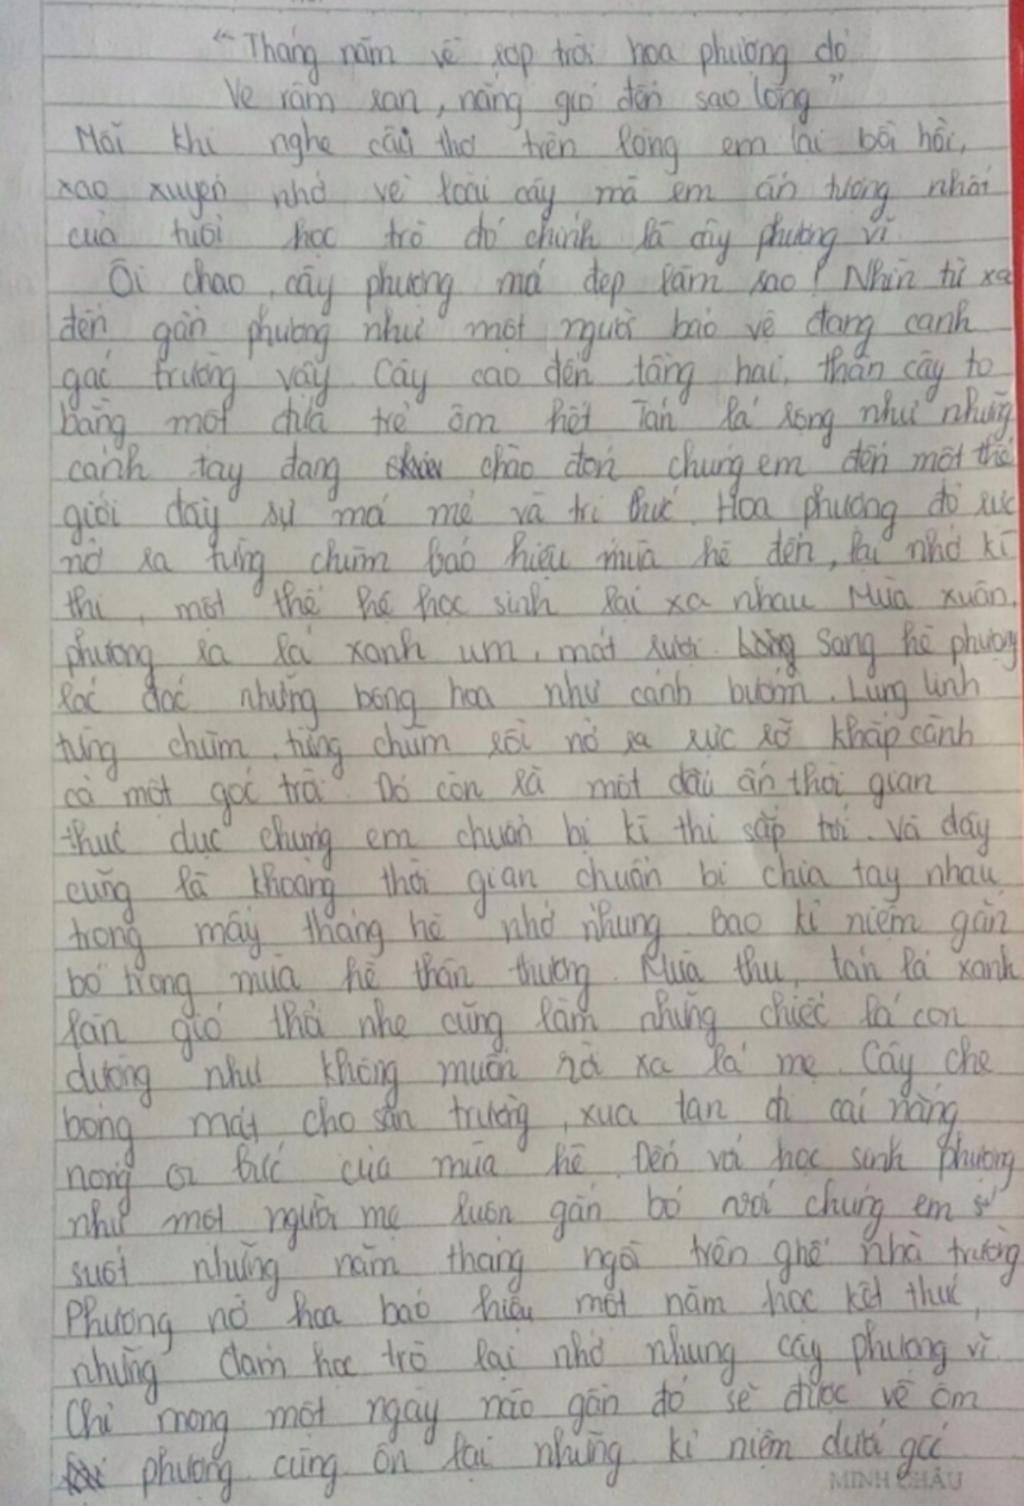 "Tháng năm về rợp trời hoa phượng đỏ
Ve râm ran, nắng gió đến sao lòng"
Mỗi khi nghe câu thơ trên lòng em lại bồi hồi,
xao xuyến nhớ về loài cây mà em ấn tượng nhất
của tuổi học trò đó chính là cây phượng vĩ
Ôi chao, cây phượng mới đẹp làm sao! Nhìn từ xa
đến gần phượng như một người bảo vệ đang canh
gác trường vậy. Cây cao đến tầng hai, thân cây to
bằng một đứa trẻ ôm hết Tán lá rộng như những
cánh tay đang chào đón chúng em đến một thế
giới đầy sự mới mẻ và tri thức. Hoa phượng đỏ rực
nở ra từng chùm báo hiệu mùa hè đến, lại nhớ kì
thi, một thế hệ học sinh lại xa nhau Mùa xuân,
phượng ra lá xanh um, mát rượi. Sang hè phượng
lác đác những bông hoa như cánh bướm. Lung linh
từng chùm, từng chùm rồi nở ra rực rỡ khắp cành
cả một góc trời. Đó còn là một dấu ấn thời gian
thúc dục chúng em chuẩn bị kì thi sắp tới. Và đấy
cũng là khoảng thời gian chuẩn bị chia tay nhau
trong mấy tháng hè nhớ nhung bao kỉ niệm gắn
bó trong mùa hè thân thương. Mùa thu, tán lá xanh
làn gió thả nhẹ cũng làm những chiếc lá con
dường như không muốn rời xa lá mẹ. Cây che
bóng mát cho sân trường, xua tan đi cái nắng
nóng oi bức của mùa hè. Đến với học sinh phượng
như một người mẹ luôn gắn bó với chúng em
suốt những năm tháng ngồi trên ghế nhà trường
Phượng nở hoa báo hiệu một năm học kết thúc,
những đám học trò lại nhớ nhung cây phượng vĩ.
Chỉ mong một ngày nào gần đó sẽ được về ôm
phượng cùng ôn lại những kỉ niệm dưới gốc
MINH CHÂU